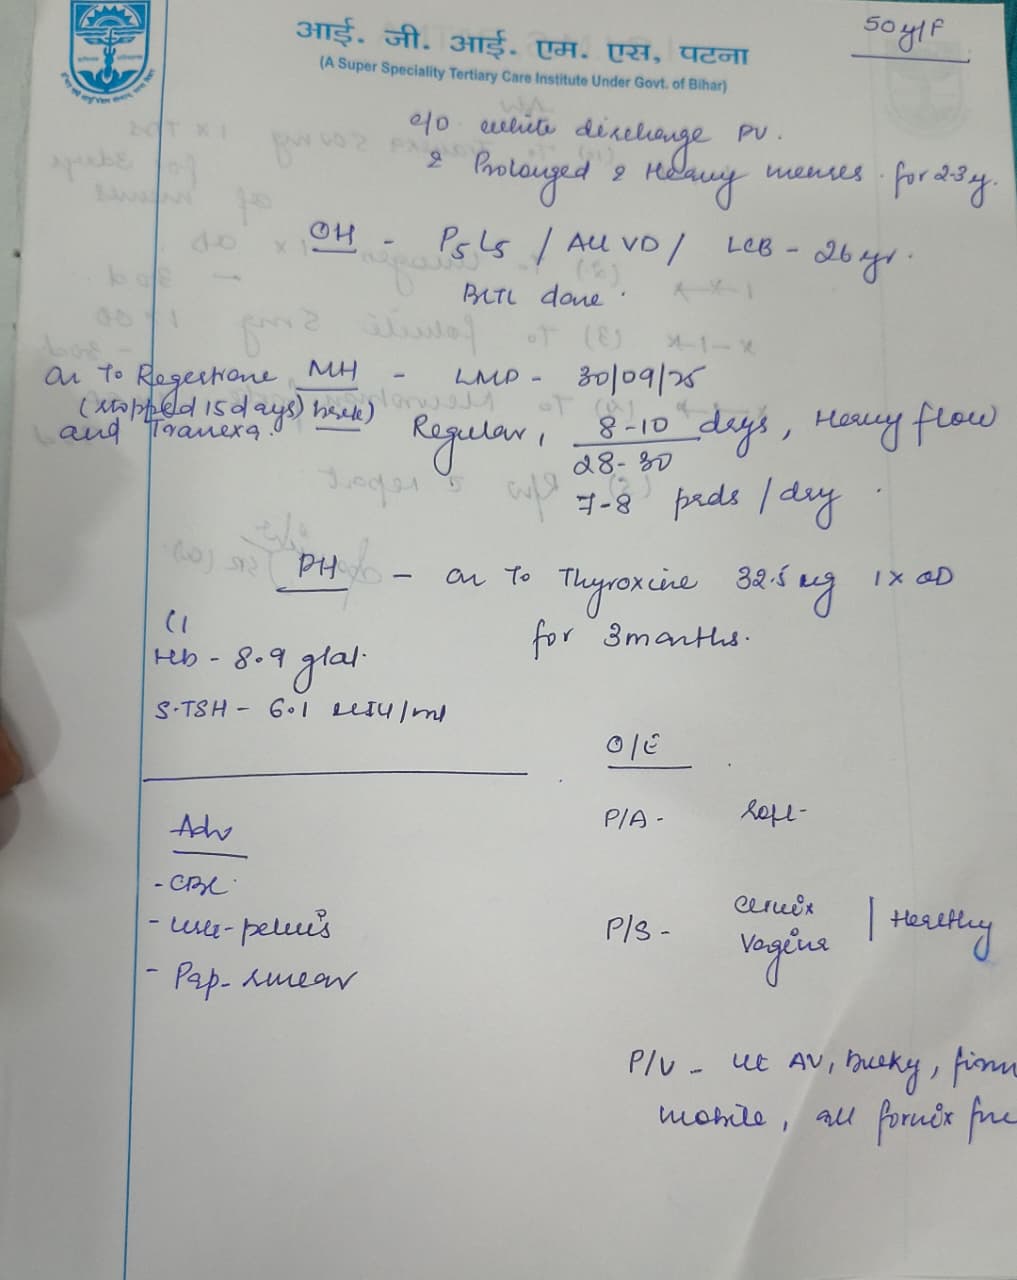 50y/F
आई. जी. आई. एम. एस, पटना
(A Super Speciality Tertiary Care Institute Under Govt. of Bihar)
c/o white discharge PV.
& Prolonged & Heavy menses. for 2-3y.
OH - P5L5 / All VD / LCB - 26 yr.
BLTL done.
MH - LMP - 30/09/25
on To Regestrone
(stopped 15 days back)
and Tranexa.
Regular, 8-10 days, Heavy flow
28-30
7-8 pads / day.
PH - on To Thyroxine 32.5 mcg 1 x OD
for 3 months.
Hb - 8.9 g/dl.
S.TSH - 6.1 uIU/ml
O/E
P/A - Soft-
P/S - cervix
Vagina | Healthy
P/V - Ut AV, Bulky, firm
mobile, all fornix free
Adv
- CBC
- USG-pelvis
- Pap-smear